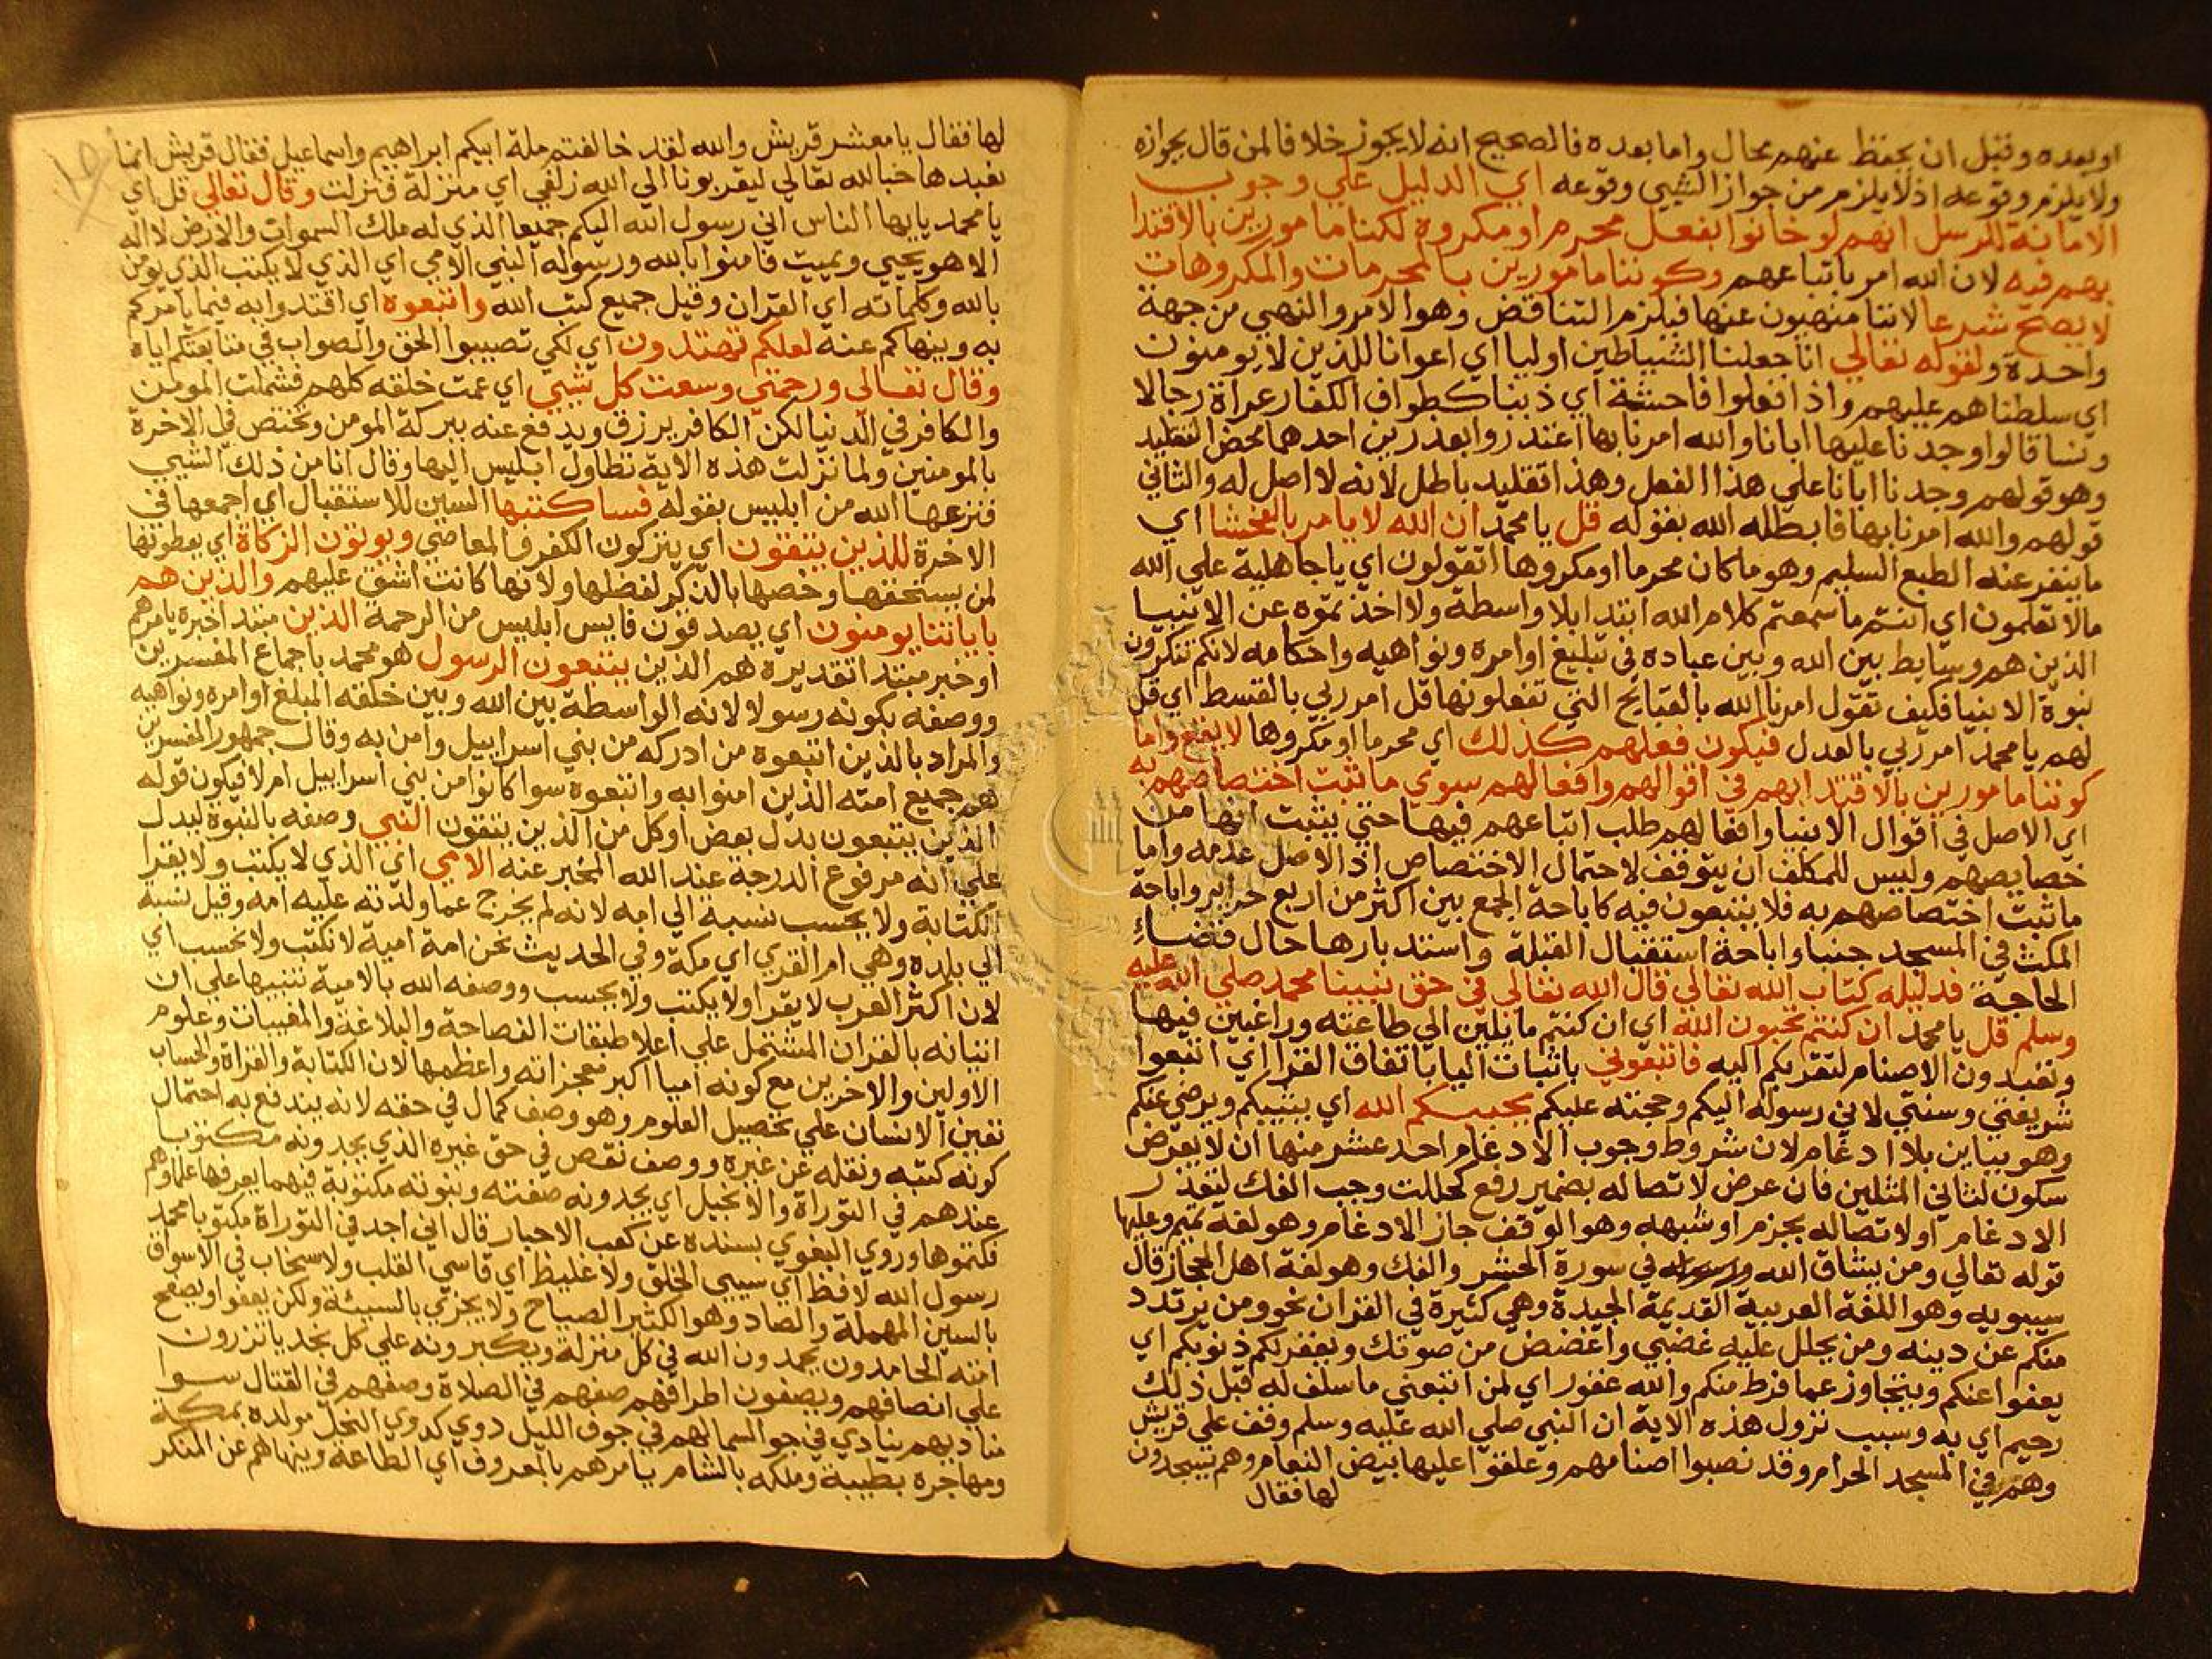 او بعده وقيل ان يحفظ عنهم محال واما بعده فالصحيح انه لا يجوز خلافا لمن قال بجوازه
ولا يلزم وقوعه اذ لا يلزم من جواز الشيي وقوعه اي الدليل علي وجوب
الامانة للرسل انهم لو خانوا بفعل محرم او مكروه لكنا مامورين بالاقتدا
بهم فيه لان الله امر باتباعهم وكوننا مامورين بالمحرمات والمكروهات
لا يصح شرعا لاننا منهيون عنها فيلزم التناقض وهو الامر والنهي من جهة
واحدة ولقوله تعالي انا جعلنا الشياطين اوليا اي اعوانا للذين لا يومنون
اي سلطناهم عليهم واذا فعلوا فاحشة اي ذنبا كطواف الكفار عراة رجالا
ونسا قالوا وجدنا عليها ابانا والله امرنا بها اعتذروا بعذرين احدهما محض التقليد
وهو قولهم وجدنا ابانا علي هذا الفعل وهذا تقليد باطل لانه لا اصل له والثاني
قولهم والله امرنا بها فابطله الله بقوله قل يا محمد ان الله لا يامر بالفحشا اي
ما ينفر عنه الطبع السليم وهو ما كان محرما او مكروها اتقولون اي يا جاهلية علي الله
مالا تعلمون اي انتم ما سمعتم كلام الله ابتدا بلا واسطة ولا اخذتموه عن الانبيا
الذين هم وسايط بين الله وبين عباده في تبليغ اوامره ونواهيه واحكامه لانكم تنكرون
نبوة الانبيا فكيف تقول امرنا الله بالقبايح التي تفعلونها قل امر ربي بالقسط اي قل
لهم يا محمد امر ربي بالعدل فيكون فعلهم كذلك اي محرما او مكروها لا يقع واما
كوننا مامورين بالاقتدا بهم في اقوالهم وافعالهم سوي ما ثبت اختصاصهم به
اي الاصل في اقوال الانبيا وافعالهم طلب اتباعهم فيها حتي يثبت انها من
خصايصهم وليس للمكلف ان يتوقف لاحتمال الاختصاص اذ الاصل عدمه واما
ما ثبت اختصاصهم به فلا يتبعون فيه كاباحة الجمع بين اكثر من اربع حراير واباحة
المكث في المسجد جنبا واباحة استقبال القبلة واستدبارها حال قضاء
الحاجة فدليله كتاب الله تعالي قال الله تعالي في حق نبينا محمد صلي الله عليه
وسلم قل يا محمد ان كنتم تحبون الله اي ان كنتم مايلين الي طاعته وراغبين فيها
وتعبدون الاصنام لتقربكم اليه فاتبعوني باثبات اليا باتفاق القرا اي اتبعوا
شريعتي وسنتي لاني رسوله اليكم وحجته عليكم يحببكم الله اي يثيبكم ويرضي عنكم
وهو بباين بلا ادغام لان شروط وجوب الادغام احد عشر منها ان لا يعرض
سكون لثاني المثلين فان عرض لاتصاله بضمير رفع كحللت وجب الفك لتعذر
الادغام او لاتصاله بجزم او شبهه وهو الوقف جاز الادغام وهو لغة تميم وعليها
قوله تعالي ومن يشاق الله ورسوله في سورة الحشر والفك وهو لغة اهل الحجاز قال
سيبويه وهو اللغة العربية القديمة الجيدة وهي كثيرة في القران نحو ومن يرتدد
منكم عن دينه ومن يحلل عليه غضبي واغضض من صوتك ويغفر لكم ذنوبكم اي
يعفوا عنكم ويتجاوز عما فرط منكم والله غفور اي لمن اتبعني ما سلف له قبل ذلك
رحيم اي به وسبب نزول هذه الاية ان النبي صلي الله عليه وسلم وقف علي قريش
وهم في المسجد الحرام وقد نصبوا اصنامهم وعلقوا عليها بيض النعام وهم يسجدون
لها فقال
لها فقال يا معشر قريش والله لقد خالفتم ملة ابيكم ابراهيم واسماعيل فقال قريش انما
نعبدها حبا لله تعالي ليقربونا الي الله زلفي اي منزلة فنزلت وقال تعالي قل اي
يا محمد يا يها الناس اني رسول الله اليكم جميعا الذي له ملك السموات والارض لا اله
الا هو يحيي ويميت فامنوا بالله ورسوله النبي الامي اي الذي لا يكتب الذي يومن
بالله وكلماته اي القران وقيل جميع كتب الله واتبعوه اي اقتدوا به فيما يامركم
به وينهاكم عنه لعلكم تهتدون اي لكي تصيبوا الحق والصواب في متابعتكم اياه
وقال تعالي ورحمتي وسعت كل شيي اي عمت خلقه كلهم فشملت المومن
والكافر في الدنيا لكن الكافر يرزق ويدفع عنه ببركة المومن وتختص في الاخرة
بالمومنين ولما نزلت هذه الاية تطاول ابليس اليها وقال انا من ذلك الشيي
فنزعها الله من ابليس بقوله فساكتبها السين للاستقبال اي اجمعها في
الاخرة للذين يتقون اي يتركون الكفر والمعاصي ويوتون الزكاة اي يعطونها
لمن يستحقها وخصها بالذكر لفضلها ولانها كانت اشق عليهم والذين هم
باياتنا يومنون اي يصدقون فايس ابليس من الرحمة الذين مبتدا خبره يامرهم
او خبر مبتدا تقديره هم الذين يتبعون الرسول هو محمد باجماع المفسرين
ووصفه بكونه رسولا لانه الواسطة بين الله وبين خلقه المبلغ اوامره ونواهيه
والمراد بالذين اتبعوه من ادركه من بني اسراييل وامن به وقال جمهور المفسرين
هم جميع امته الذين امنوا به واتبعوه سوا كانوا من بني اسراييل ام لا فيكون قوله
الذين يتبعون بدل بعض او كل من الذين يتقون النبي وصفه بالنبوة ليدل
علي انه مرفوع الدرجة عند الله المخبر عنه الامي اي الذي لا يكتب ولا يقرا
الكتابة ولا يحسب نسبة الي امه لانه لم يخرج عما ولدته عليه امه وقيل نسبة
الي بلده وهي ام القري اي مكة وفي الحديث نحن امة امية لا نكتب ولا نحسب اي
لان اكثر العرب لا يقرا ولا يكتب ولا يحسب ووصفه الله بالامية تنبيها علي ان
اتيانه بالقران المشتمل علي اعلا طبقات الفصاحة والبلاغة والمغيبات وعلوم
الاولين والاخرين مع كونه اميا اكبر معجزاته واعظمها لان الكتابة والقراة والحساب
تعين الانسان علي تحصيل العلوم وهو وصف كمال في حقه لانه يندفع به احتمال
كونه كتبه ونقله عن غيره ووصف نقص في حق غيره الذي يجدونه مكتوبا
عندهم في التوراة والانجيل اي يجدونه صفته ونبوته مكتوبة فيهما يعرفها علماوهم
فكتموها وروي البغوي بسنده عن كعب الاحبار قال اني اجد في التوراة مكتوبا محمد
رسول الله لا فظ اي سيي الخلق ولا غليظ اي قاسي القلب ولا سخاب في الاسواق
بالسين المهملة والصاد وهو الكثير الصياح ولا يجزي بالسيئة ولكن يعفو او يصفح
امته الحامدون يحمدون الله في كل منزلة ويكبرونه علي كل نجد ياتزرون
علي انصافهم ويصفون اطرافهم صفهم في الصلاة وصفهم في القتال سوا
مناديهم ينادي في جو السما لهم في جوف الليل دوي كدوي النحل مولده بمكة
ومهاجره بطيبة وملكه بالشام يامرهم بالمعروف اي الطاعة وينهاهم عن المنكر